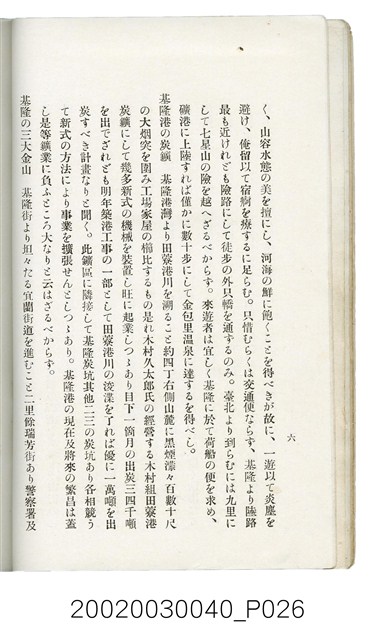 く、山容水態の美を擅にし、河海の鮮に飽くことを得べきが故に、一遊以て炎塵を
避け、俺留以て宿痾を療するに足らむ。只惜むらくは交通便ならず、基隆より陸路
最も近けれども險路にして徒歩の外只轎を通ずるのみ。臺北より到らむには九里に
して七星山の險を越へざるべからず。來遊者は宜しく基隆に於て荷船の便を求め、
礦港に上陸すれば僅かに數十歩にして金包里温泉に達するを得べし。
基隆港の炭鑛　基隆港灣より田蓼港川を溯ること約四丁右側山麓に黒煙濛々百數十尺
の大烟突を圍み工場家屋の櫛比するもの是れ木村久太郎氏の經營する木村組田蓼港
炭鑛にして幾多新式の機械を裝置し旺に起業しつゝあり目下一箇月の出炭三四千噸
を出でざれども明年築港工事の一部として田蓼港川の浚渫を了れば優に一萬噸を出
炭すべき計畫なりと聞く。此鑛區に隣接して基隆炭坑其他二三の炭坑あり各相競う
て新式の方法により事業を擴張せんとしつゝあり。基隆港の現在及將來の繁昌は蓋
し是等鑛業に負ふところ大なりと云はざるべからず。
基隆の三大金山　基隆街より坦々たる宜蘭街道を進むこと二里餘瑞芳街あり警察署及
六
20020030040_P026